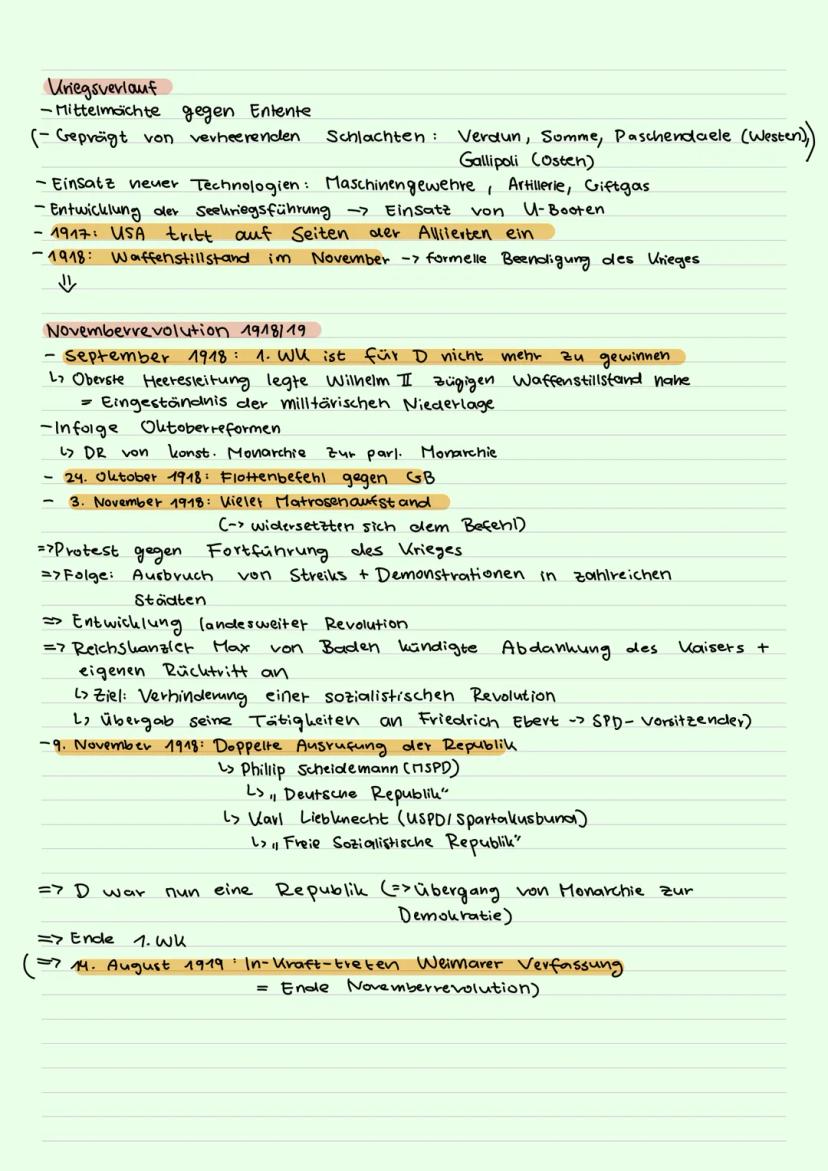 Kriegsverlauf
- Mittelmächte gegen Entente
(- Geprägt von verheerenden Schlachten: Verdun, Somme, Paschendaele (Westen),)
Gallipoli (Osten)
- Einsatz neuer Technologien: Maschinengewehre, Artillerie, Giftgas
- Entwicklung der Seekriegsführung -> Einsatz von U-Booten
- 1917: USA tritt auf Seiten der Alliierten ein
- 1918: Waffenstillstand im November -> formelle Beendigung des Krieges
⇓
Novemberrevolution 1918/19
- September 1918: 1. WK ist für D nicht mehr zu gewinnen
↳ Oberste Heeresleitung legte Wilhelm II zügigen Waffenstillstand nahe
= Eingeständnis der militärischen Niederlage
- Infolge Oktoberreformen
↳ DR von konst. Monarchie zur parl. Monarchie
- 24. Oktober 1918: Flottenbefehl gegen GB
- 3. November 1918: Kieler Matrosenaufstand
(-> widersetzten sich dem Befehl)
=> Protest gegen Fortführung des Krieges
=> Folge: Ausbruch von Streiks + Demonstrationen in zahlreichen
Städten
=> Entwicklung landesweiter Revolution
=> Reichskanzler Max von Baden kündigte Abdankung des Kaisers +
eigenen Rücktritt an
↳ Ziel: Verhinderung einer sozialistischen Revolution
↳ Übergab seine Tätigkeiten an Friedrich Ebert -> SPD-Vorsitzender)
- 9. November 1918: Doppelte Ausrufung der Republik
↳ Phillip Scheidemann (MSPD)
↳ „Deutsche Republik“
↳ Karl Liebknecht (USPD/Spartakusbund)
↳ „Freie Sozialistische Republik“
=> D war nun eine Republik (=> Übergang von Monarchie zur
Demokratie)
=> Ende 1. WK
(=> 14. August 1919: In-Kraft-treten Weimarer Verfassung
= Ende Novemberrevolution)